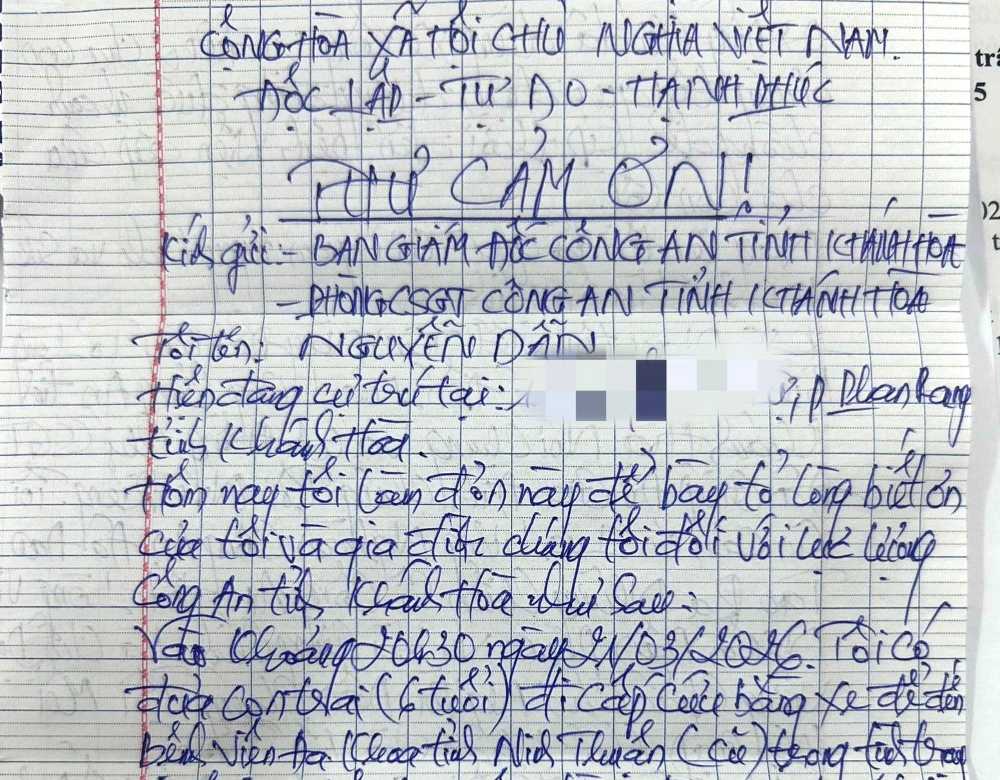 CỘNG HÒA XÃ HỘI CHỦ NGHĨA VIỆT NAM.
ĐỘC LẬP - TỰ DO - HẠNH PHÚC
THƯ CẢM ƠN!
Kính gửi: - BAN GIÁM ĐỐC CÔNG AN TỈNH KHÁNH HÒA
- PHÒNG CSGT CÔNG AN TỈNH KHÁNH HÒA
Tôi tên: NGUYỄN DẦN
Hiện đang cư trú tại: , P Phan Rang
tỉnh Khánh Hòa.
Hôm nay tôi làm đơn này để bày tỏ lòng biết ơn
của tôi và gia đình chúng tôi đối với lực lượng
Công An tỉnh Khánh Hòa như sau:
Vào khoảng 20h30 ngày 21/03/2026. Tôi có
đưa con trai (6 tuổi) đi cấp cứu bằng xe để đến
Bệnh viện Đa khoa tỉnh Ninh Thuận (cũ) trong tình trạng
trâ
5